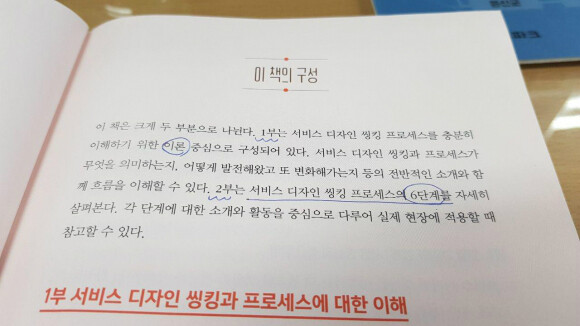 이 책의 구성
이 책은 크게 두 부분으로 나뉜다. 1부는 서비스 디자인 씽킹 프로세스를 충분히
이해하기 위한 이론 중심으로 구성되어 있다. 서비스 디자인 씽킹과 프로세스가
무엇을 의미하는지, 어떻게 발전해왔고 또 변화해가는지 등의 전반적인 소개와 함
께 흐름을 이해할 수 있다. 2부는 서비스 디자인 씽킹 프로세스의 6단계를 자세히
살펴본다. 각 단계에 대한 소개와 활동을 중심으로 다루어 실제 현장에 적용할 때
참고할 수 있다.
1부 서비스 디자인 씽킹과 프로세스에 대한 이해